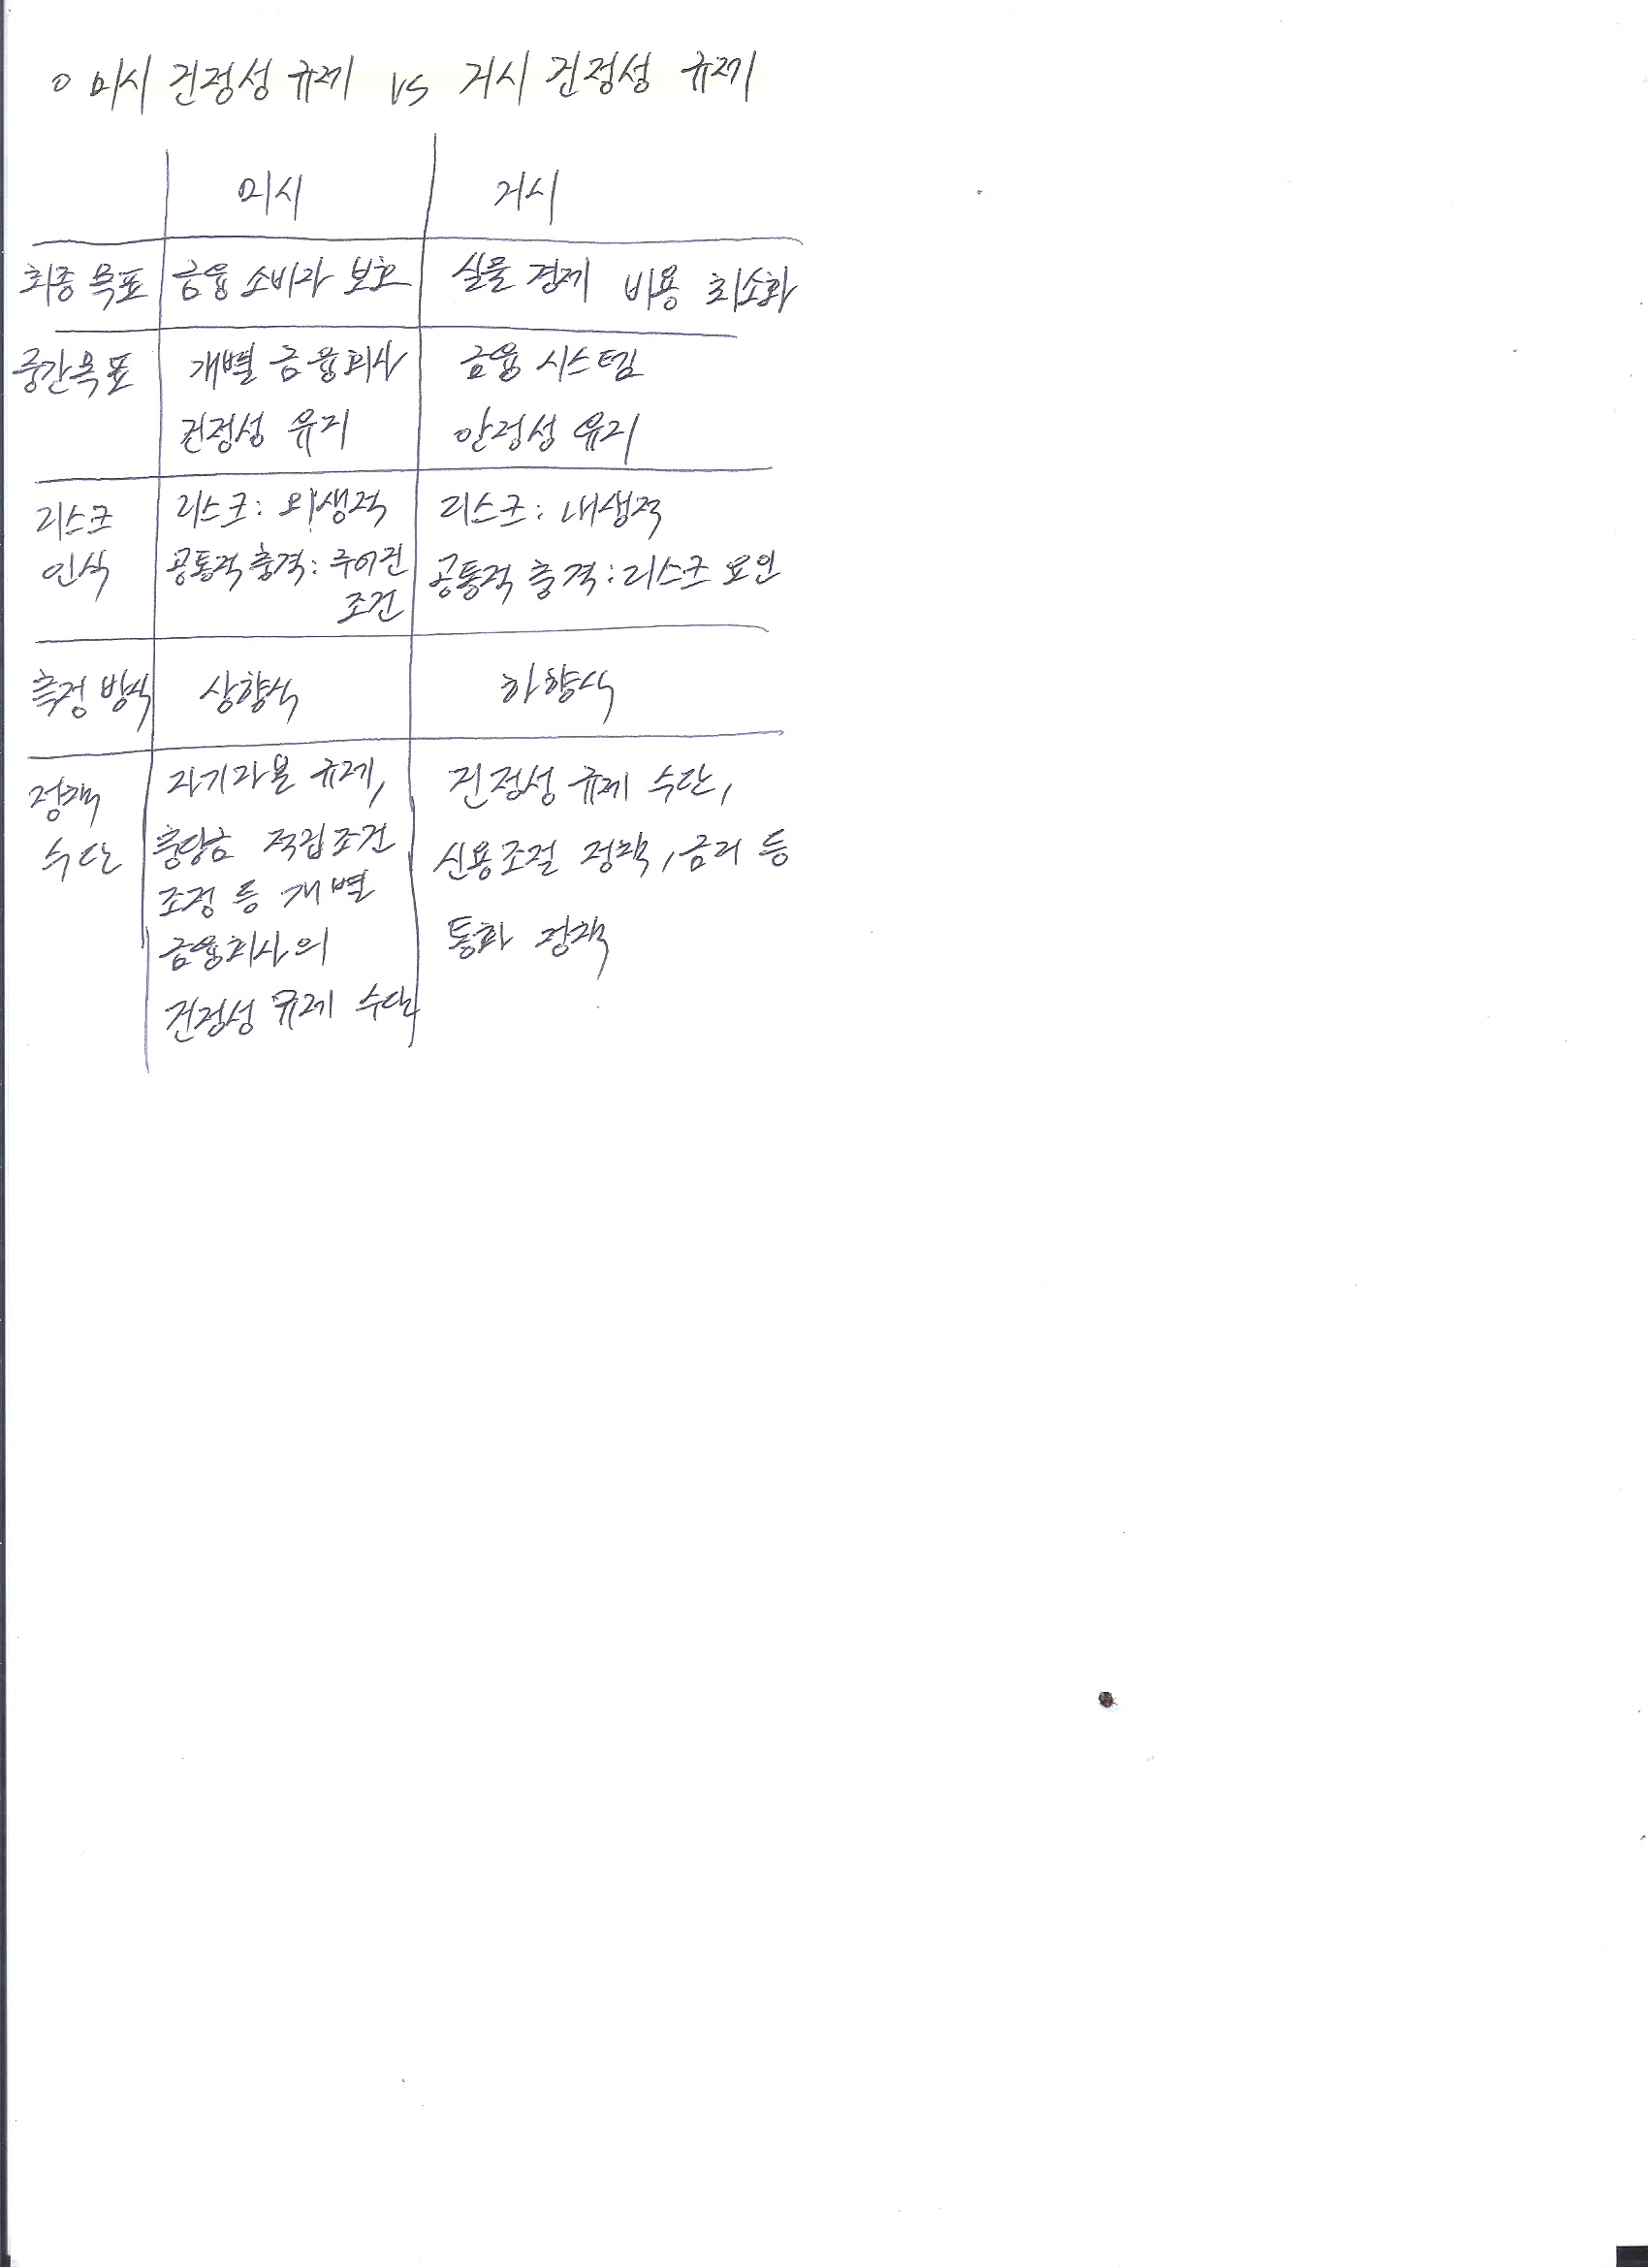 ○ 미시 건정성 규제 vs 거시 건정성 규제
미시 거시
최종 목표 금융 소비자 보호 실물 경제 비용 최소화
중간목표 개별 금융회사 금융 시스템
건정성 유지 안정성 유지
리스크 리스크: 외생적 리스크: 내생적
인식 공통적 충격: 주어진 공통적 충격: 리스크 요인
조건
측정 방식 상향식 하향식
정책 자기자본 규제, 건정성 규제 수단,
수단 충당금 적립조건 신용조절 정책, 금리 등
조정 등 개별
금융회사의 통화 정책
건정성 규제 수단